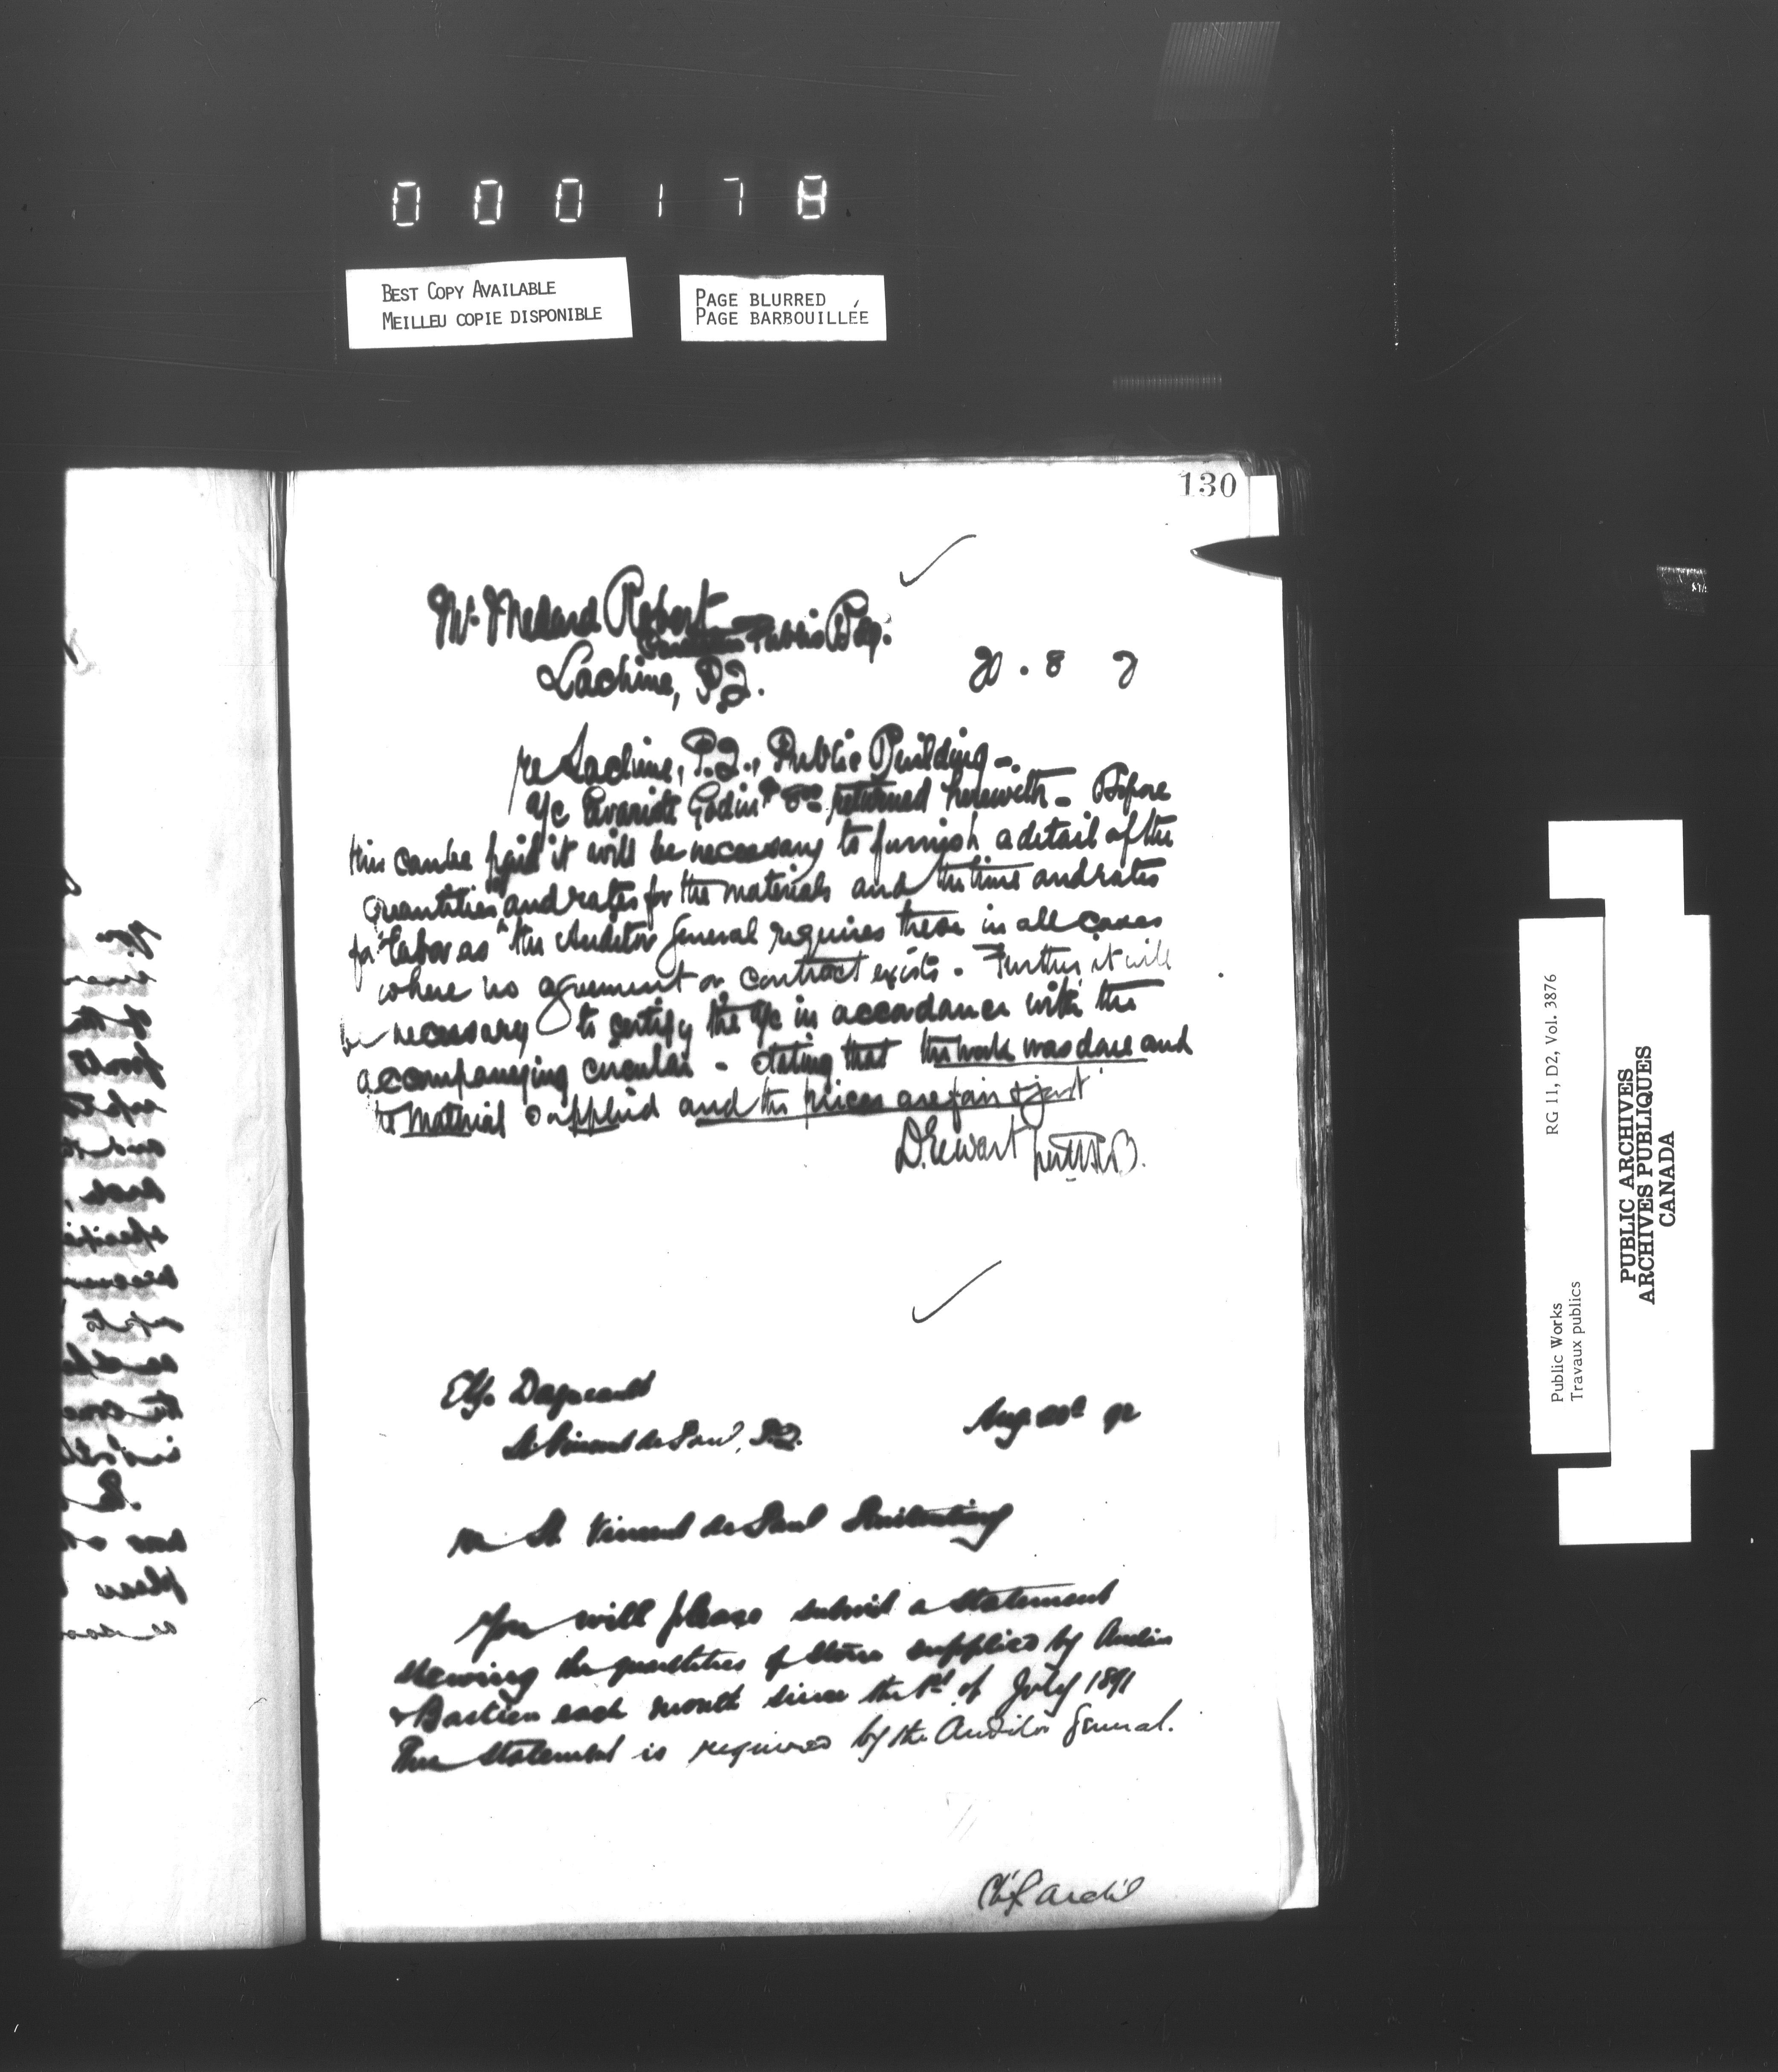 000178
BEST COPY AVAILABLE
MEILLEU COPIE DISPONIBLE
PAGE BLURRED
PAGE BARBOUILLÉE
130
Mr. Medard Robert
Public Bdg.
Lachine, P.Q.
20 . 8 2
re Lachine, P.Q., Public Building -
a/c Evariste Godin returned herewith - Before
this can be paid it will be necessary to furnish a detail of the
quantities and rates for the materials and the time and rates
for labor as the Auditor General requires these in all cases
where no agreement or contract exists. Further it will
be necessary to certify the a/c in accordance with the
accompanying circular - stating that the work was done and
material supplied and the prices are fair & just
D. Ewart
St. Vincent de Paul, P.Q.
Aug 20th 92
re St. Vincent de Paul Penitentiary
You will please submit a statement
shewing the quantities of stone supplied by
& Bastien each month since the 1st of July 1891
This statement is required by the Auditor General.
Ch'f Archt
RG 11, D2, Vol. 3876
Public Works
Travaux publics
PUBLIC ARCHIVES
ARCHIVES PUBLIQUES
CANADA